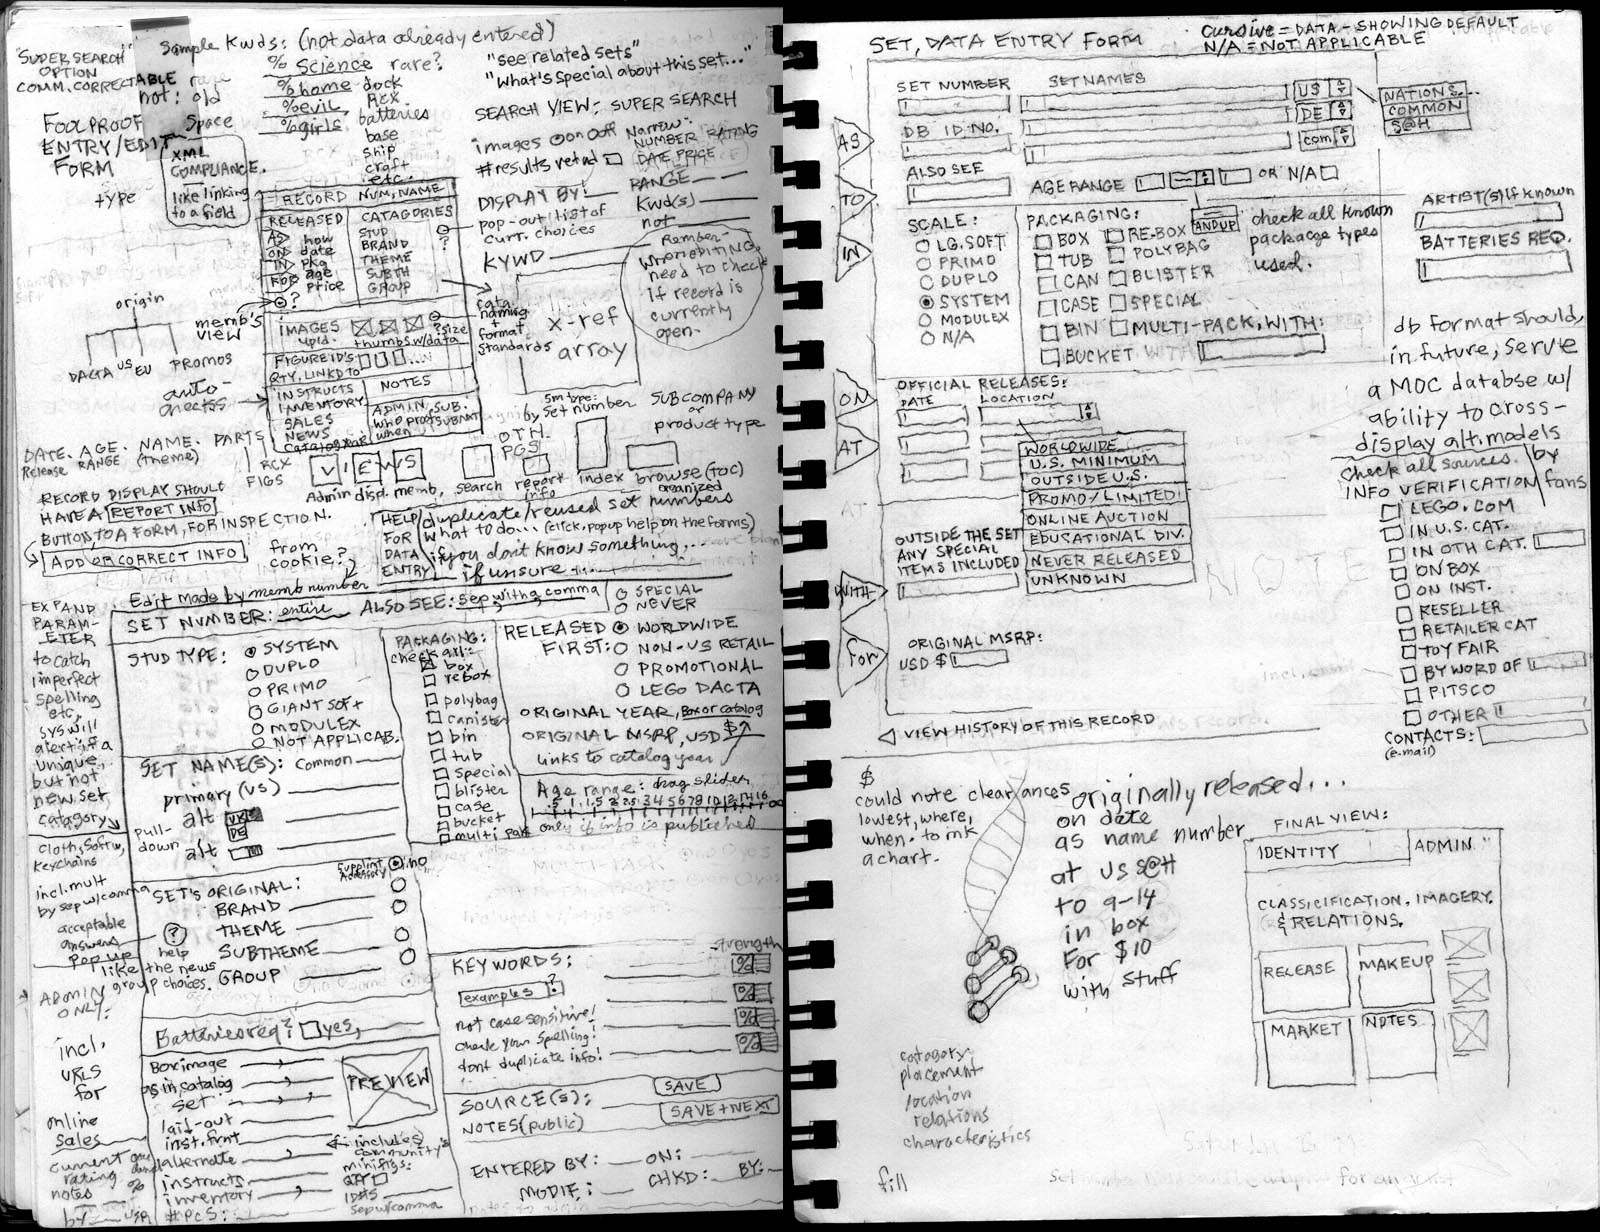 "SUPER SEARCH"
OPTION
COMM. CORRECTABLE
not: old
Space
Sample Kwds: (not data already entered)
% Science rare?
% home dock
% evil RCX
% girls batteries
base
ship
craft
etc.
"see related sets"
"What's special about this set..."
SEARCH VIEW: SUPER SEARCH
images on off
# results retnd
Narrow:
NUMBER RATING
DATE PRICE
RANGE
Kwd(s)
not
DISPLAY BY:
pop-out list of
curr. choices
KYWD
Remember-
when editing,
need to check
if record is
currently
open.
FOOLPROOF
ENTRY/EDIT
FORM
type
XML
COMPLIANCE.
like linking
to a field
RECORD NUM, NAME
RELEASED
AS how
ON date
IN pkg
FOR age
price
?
CATAGORIES
STUD
BRAND
THEME
SUBTH
GROUP
?
IMAGES
upld.
thumbs w/data
? size
FIGURE ID'S
QTY, LINKD TO
INSTRUCTS
INVENTORY
SALES
NEWS
Catalog year
NOTES
ADMIN, SUB.
who proof
when
data
naming
+
format
standards
x-ref
array
origin
DACTA US EU PROMOS
memb's
view
auto-
DATE. AGE. NAME. PARTS
Release RANGE (theme)
RCX
FIGS
VIEWS
Admin disp. memb.
search report
info
OTH.
PGS
by set number
index
SUBCOMPANY
or
product type
browse (TOC)
organized
RECORD DISPLAY SHOULD
HAVE A REPORT INFO
BUTTON TO A FORM, FOR INSPECTION.
ADD OR CORRECT INFO
from
cookie?
HELP
FOR
DATA
ENTRY
duplicate/reused set numbers
what to do... (click, popup help on the forms)
if you don't know something...
if unsure
Edit made by memb number
SET NUMBER: entire ALSO SEE: sep, with, comma
EXPAND
PARAM-
ETER
to catch
imperfect
spelling
etc.
sys will
alert if a
unique,
but not
new set,
catagory
cloth, softw,
keychains
incl. mult
by sep w/comma
acceptable
answers
pop up
like the news
group choices.
STUD TYPE:
SYSTEM
DUPLO
PRIMO
GIANT SOFT
MODULEX
NOT APPLICAB.
PACKAGING:
check all:
box
rebox
polybag
canister
bin
tub
special
blister
case
bucket
multi pak
RELEASED
FIRST:
SPECIAL
NEVER
WORLDWIDE
NON-US RETAIL
PROMOTIONAL
LEGO DACTA
ORIGINAL YEAR, Box or catalog
ORIGINAL MSRP, USD $
links to catalog year
Age range: drag slider
only if info is published
SET NAME(S): common
primary (US)
alt UK
DE
alt
pull-
down
SET'S ORIGINAL:
BRAND
THEME
SUBTHEME
GROUP
Supplmt,
Accessory
no
?
help
ADMIN
ONLY:
incl.
URLS
for
online
sales
current
rating
notes
by
Batteries req? yes,
Box image
as in catalog
set
laid-out
inst. frnt
alternate
instructs
inventory
# PCS:
PREVIEW
includes
community's
minifigs:
QTY
ID#S
sep w/comma
KEYWORDS:
strength
examples ?
%
%
%
%
not case sensitive!
check your spelling!
dont duplicate info!
SAVE
SAVE + NEXT
SOURCE(S):
NOTES (public)
ENTERED BY: ON:
MODIF: CHKD: BY:
SET, DATA ENTRY FORM
cursive = DATA - SHOWING DEFAULT
N/A = NOT APPLICABLE
SET NUMBER
SET NAMES
US
DE
com
NATIONS...
COMMON
S@H
DB ID. NO.
ALSO SEE
AGE RANGE OR N/A
AND UP
AS
TO
IN
ON
AT
WITH
FOR
SCALE:
LG. SOFT
PRIMO
DUPLO
SYSTEM
MODULEX
N/A
PACKAGING:
BOX
TUB
CAN
CASE
BIN
BUCKET WITH
RE-BOX
POLYBAG
BLISTER
SPECIAL
MULTI-PACK, WITH:
check all known
package types
used.
ARTIST(S) If known
BATTERIES REQ.
db format should,
in future, serve
a MOC databse w/
ability to cross-
display alt. models
by
fans
OFFICIAL RELEASES:
DATE LOCATION
WORLDWIDE
U.S. MINIMUM
OUTSIDE U.S.
PROMO/LIMITED
ONLINE AUCTION
EDUCATIONAL DIV.
NEVER RELEASED
UNKNOWN
OUTSIDE THE SET
ANY SPECIAL
ITEMS INCLUDED
ORIGINAL MSRP:
USD $
VIEW HISTORY OF THIS RECORD
Check all sources.
INFO VERIFICATION
LEGO.COM
IN U.S. CAT.
IN OTH CAT.
ON BOX
ON INST.
RESELLER
RETAILER CAT
TOY FAIR
BY WORD OF
PITSCO
OTHER
CONTACTS:
(e-mail)
$
could note clearances
lowest, where,
when. to ink
a chart.
originally released...
on date
as name number
at US S@H
to 9-14
in box
For $10
with stuff
FINAL VIEW:
IDENTITY
ADMIN.
CLASSICIFICATION, IMAGERY,
& RELATIONS.
RELEASE
MAKEUP
MARKET
NOTES
catagory
placement
location
relations
characteristics
fill